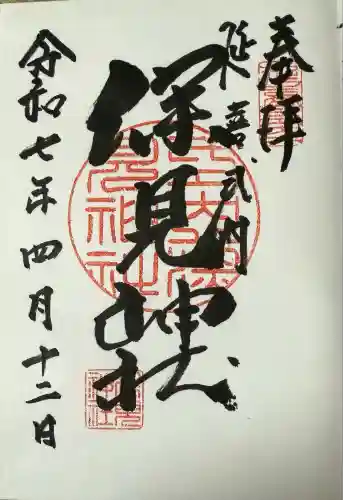 奉拝
延喜式内
深見神社
令和七年四月十二日